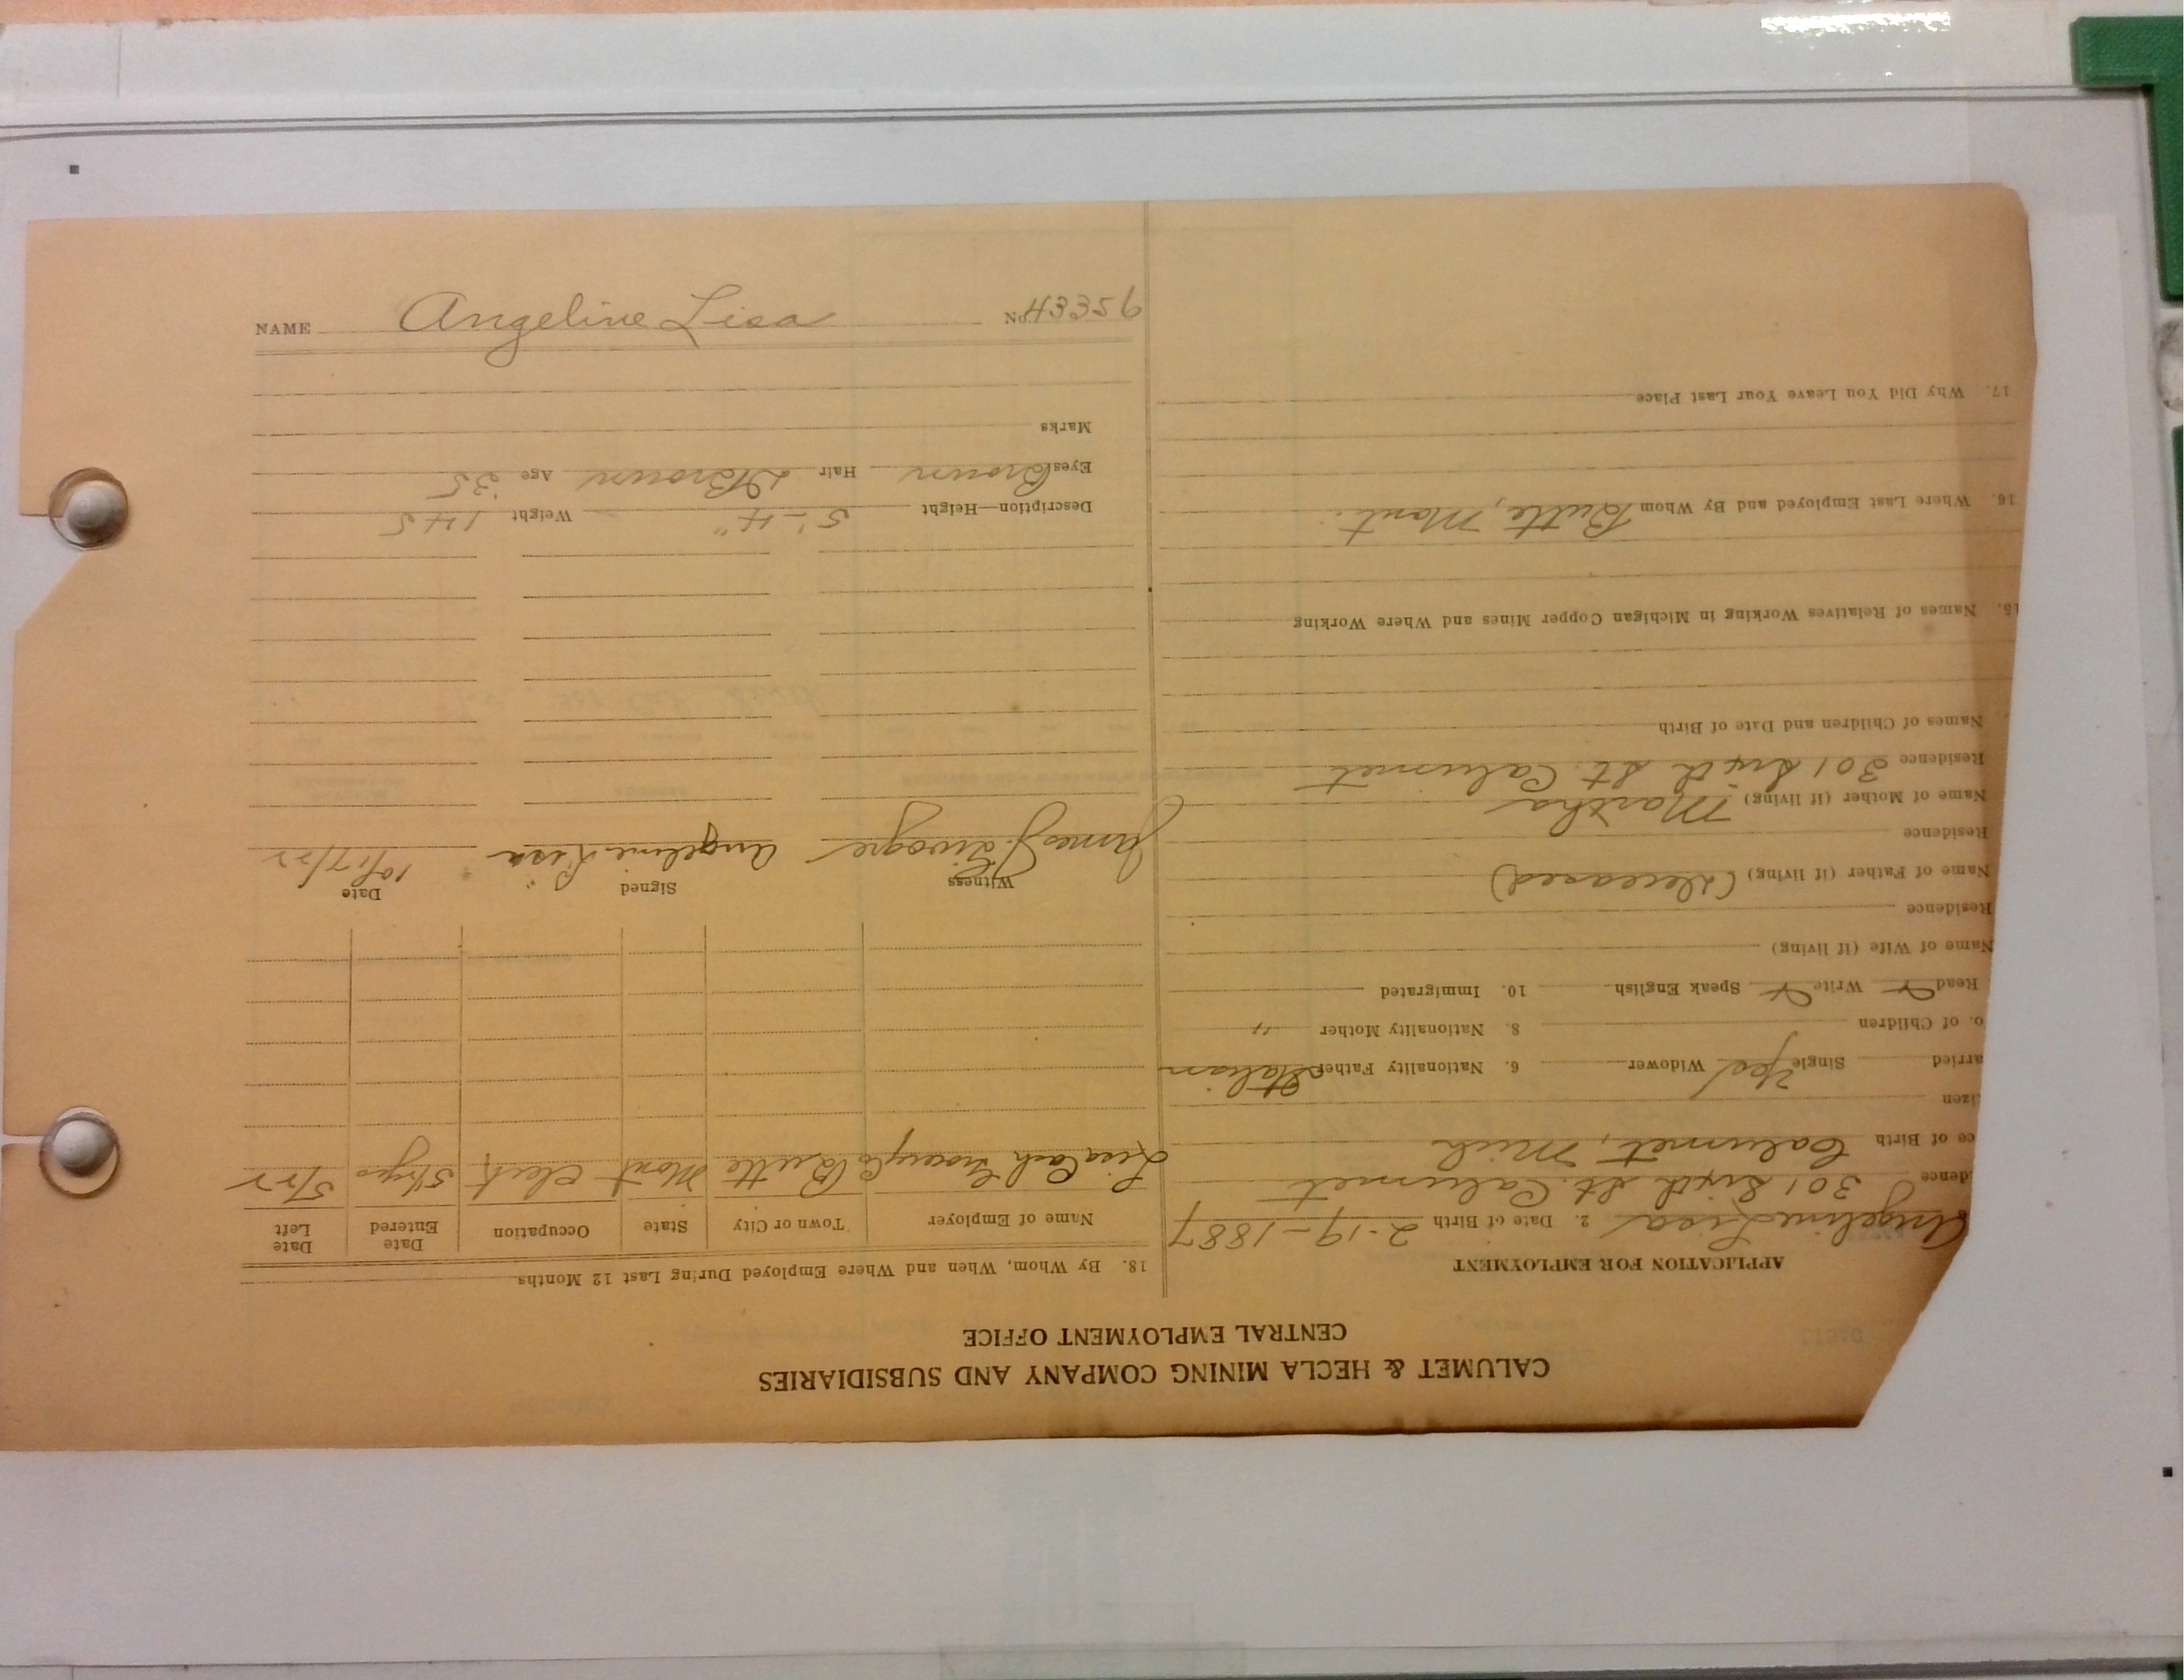 CALUMET & HECLA MINING COMPANY AND SUBSIDIARIES
CENTRAL EMPLOYMENT OFFICE
APPLICATION FOR EMPLOYMENT
Angeline Lisa 2. Date of Birth 2-19-1887
dence 301 Sixth St. Calumet
ce of Birth Calumet, Mich
izen
arried Single Yes Widower 6. Nationality Father Italian
o. of Children 8. Nationality Mother "
Read Write Speak English 10. Immigrated
Name of Wife (if living)
Residence
Name of Father (if living) (Deceased)
Residence
Name of Mother (if living) Martha
Residence 301 Sixth St. Calumet
Names of Children and Date of Birth
15. Names of Relatives Working in Michigan Copper Mines and Where Working
16. Where Last Employed and By Whom Butte, Mont.
17. Why Did You Leave Your Last Place
18. By Whom, When and Where Employed During Last 12 Months
Name of Employer Town or City State Occupation Date Entered Date Left
Lisa Cash Grocery Co Butte Mont Clerk 5 yrs 5/22
Witness Signed Date
James J. Angeline Lisa 10/17/22
Description—Height 5'-4" Weight 145
Eyes Brown Hair Brown Age 35
Marks
NAME Angeline Lisa No. 43356